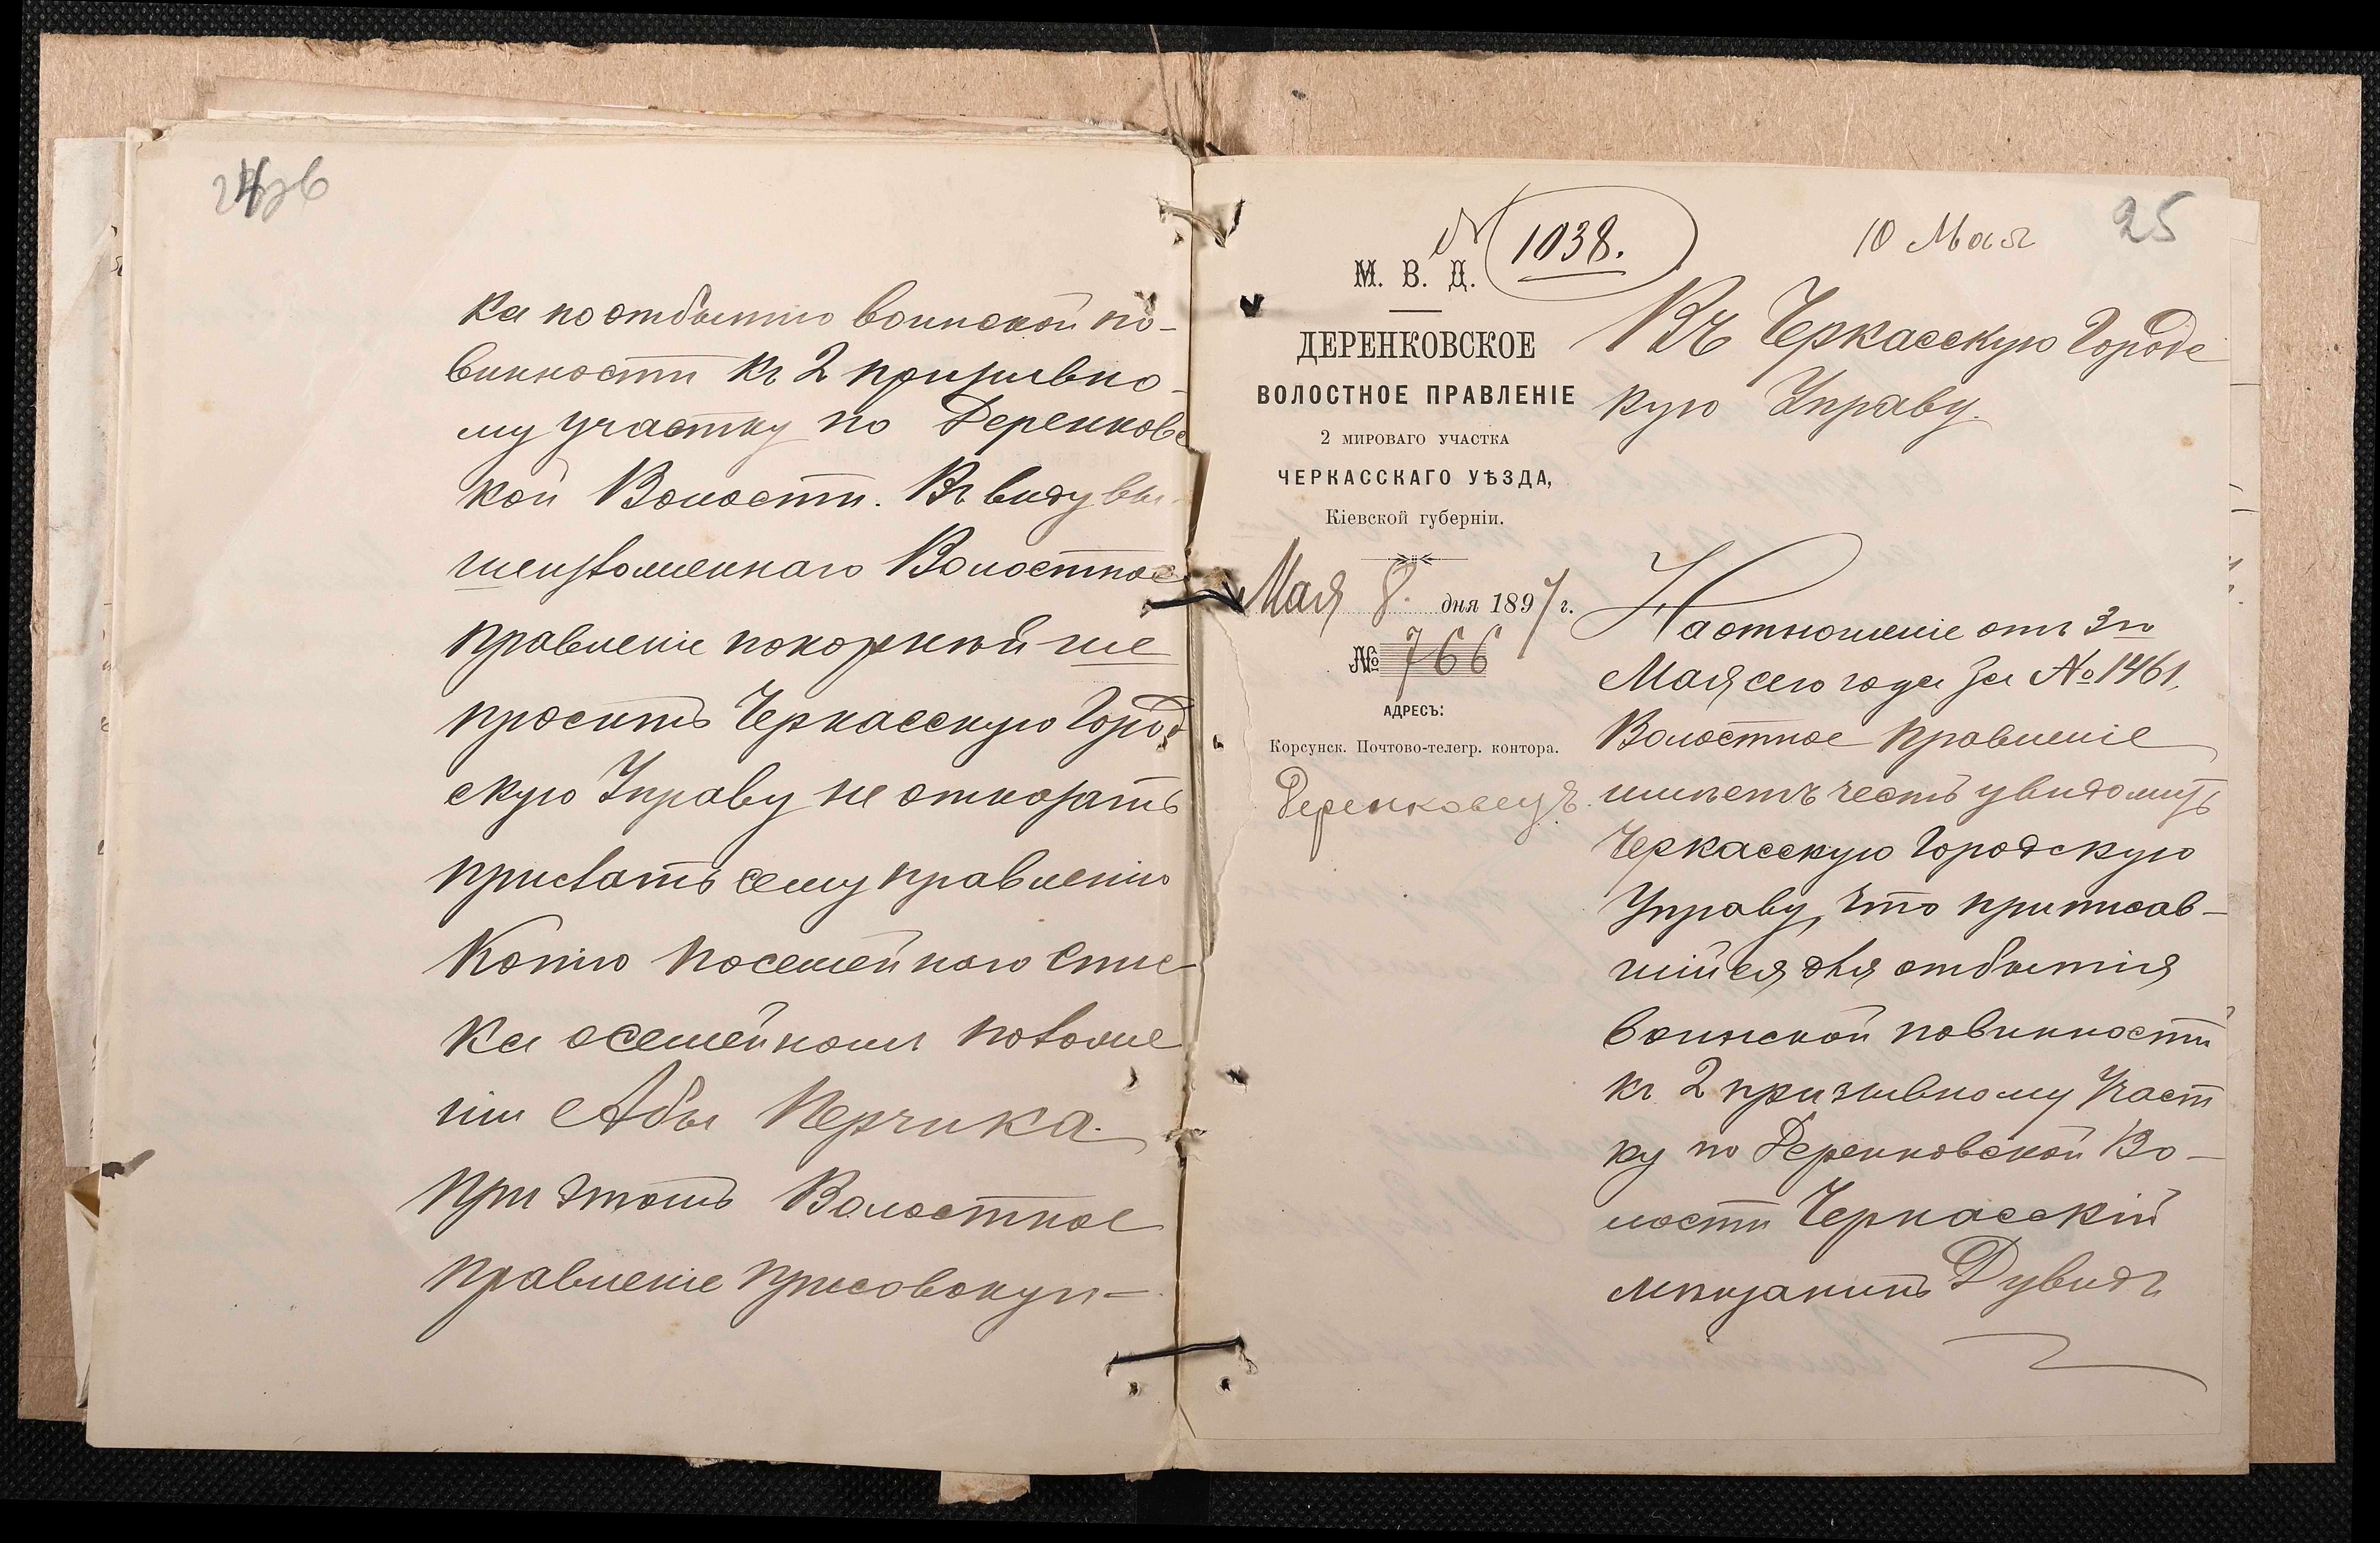 24 об
ка по отбытию воинской по-
винности къ 2 призывно-
му участку по Деренковс
кой Волости. Въ виду вы-
шеизложеннаго Волостное
правленіе покорнѣйше
проситъ Черкасскую Город
скую Управу не отказать
прислать сему правленію
копію посемейнаго спис
ка о семейномъ положе
ніи Абы Перчика.
При этомъ Волостное
правленіе присовокуп-
25
№ 1038.
10 Мая
М. В. Д.
ДЕРЕНКОВСКОЕ
ВОЛОСТНОЕ ПРАВЛЕНІЕ
2 МИРОВАГО УЧАСТКА
ЧЕРКАССКАГО УѢЗДА,
Кіевской губерніи.
Мая 8. дня 1897 г.
№ 766
АДРЕСЪ:
Корсунск. Почтово-телегр. контора.
Деренковецъ.
Въ Черкасскую Городс
кую Управу.
На отношеніе отъ 3го
Мая сего года за № 1461,
Волостное правленіе
имѣетъ честь увѣдомить
Черкасскую Городскую
Управу, что приписав-
шійся для отбытія
воинской повинности
къ 2 призывному участ
ку по Деренковской Во-
лости Черкасскій
мѣщанинъ Дувидъ